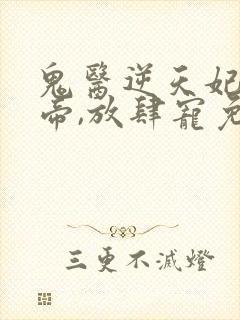 鬼醫逆天妃
帝,放肆寵
三更不滅燈